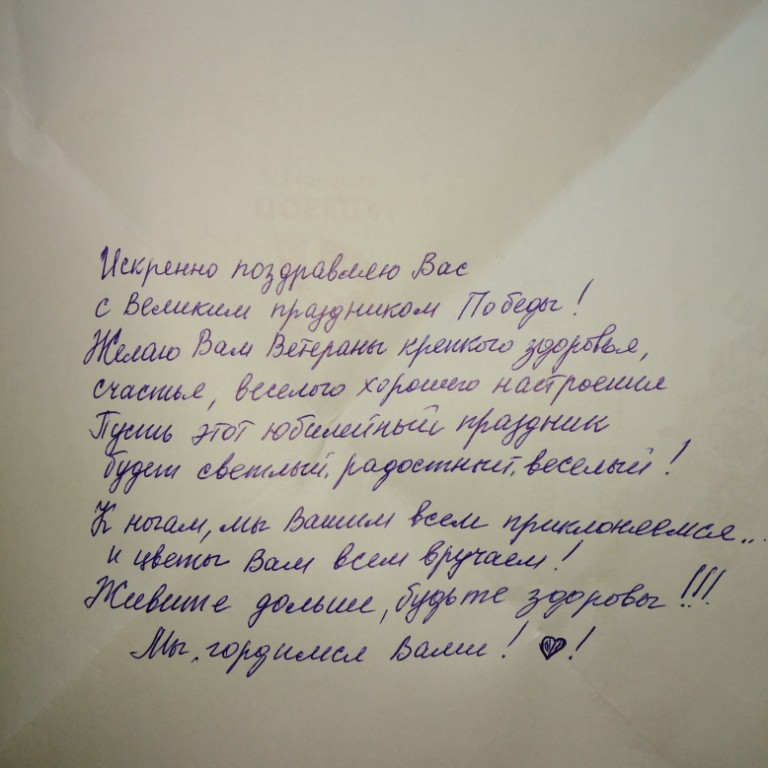 Искренно поздравляю Вас
с Великим праздником Победы!
Желаю Вам Ветераны крепкого здоровья,
счастья, веселого хорошего настроения
Пусть этот юбилейный праздник
будет светлый, радостный, веселый!
К ногам, мы Вашим всем приклоняемся...
и цветы Вам всем вручаем!
Живите дольше, будьте здоровы!!!
Мы, гордимся Вами! ♥!